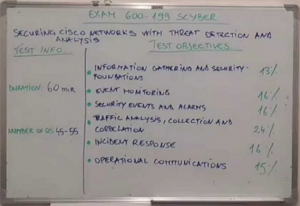 EXAM 600-199 SCYBER
SECURING CISCO NETWORKS WITH THREAT DETECTION AND
ANALYSIS
TEST INFO
TEST OBJECTIVES
INFORMATION GATHERING AND SECURITY
FOUNDATIONS 13%
DURATION: 60 min
EVENT MONITORING 16%
SECURITY EVENTS AND ALARMS 16%
TRAFFIC ANALYSIS, COLLECTION AND
CORRELATION 24%
NUMBER OF QS 45-55
INCIDENT RESPONSE 16%
OPERATIONAL COMMUNICATIONS 15%